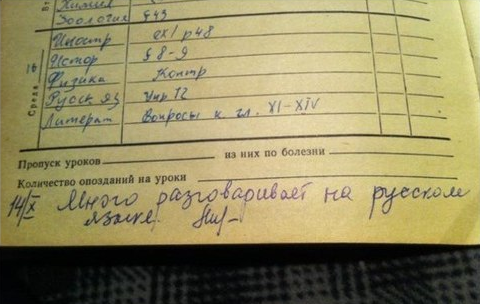 Химия
Зоология § 43
Иностр ex1 p48
Истор § 8-9
Физика Контр
Русск яз Упр 12
Литерат Вопросы к гл. XI-XIV
Среда 16
Пропуск уроков из них по болезни
Количество опозданий на уроки
14/X Много разговаривает на русском
языке.